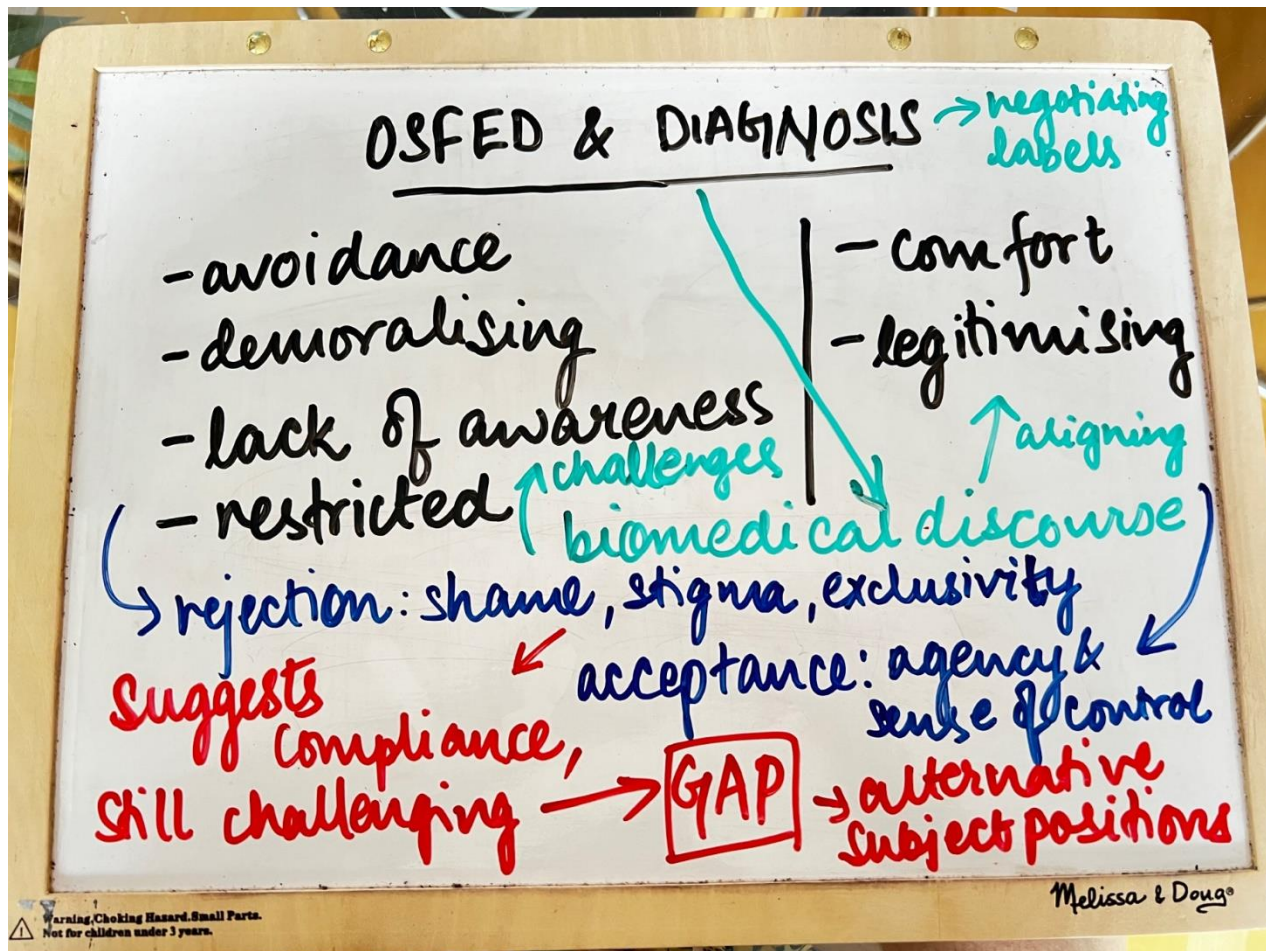 OSFED & DIAGNOSIS → negotiating
labels
- avoidance
- demoralising
- lack of awareness
- restricted
- comfort
- legitimising
↑ challenges
↑ aligning
biomedical discourse
→ rejection: shame, stigma, exclusivity
acceptance: agency &
sense of control
suggests
compliance,
still challenging → GAP → alternative
subject positions
Melissa & Doug®
Warning, Choking Hazard. Small Parts.
Not for children under 3 years.